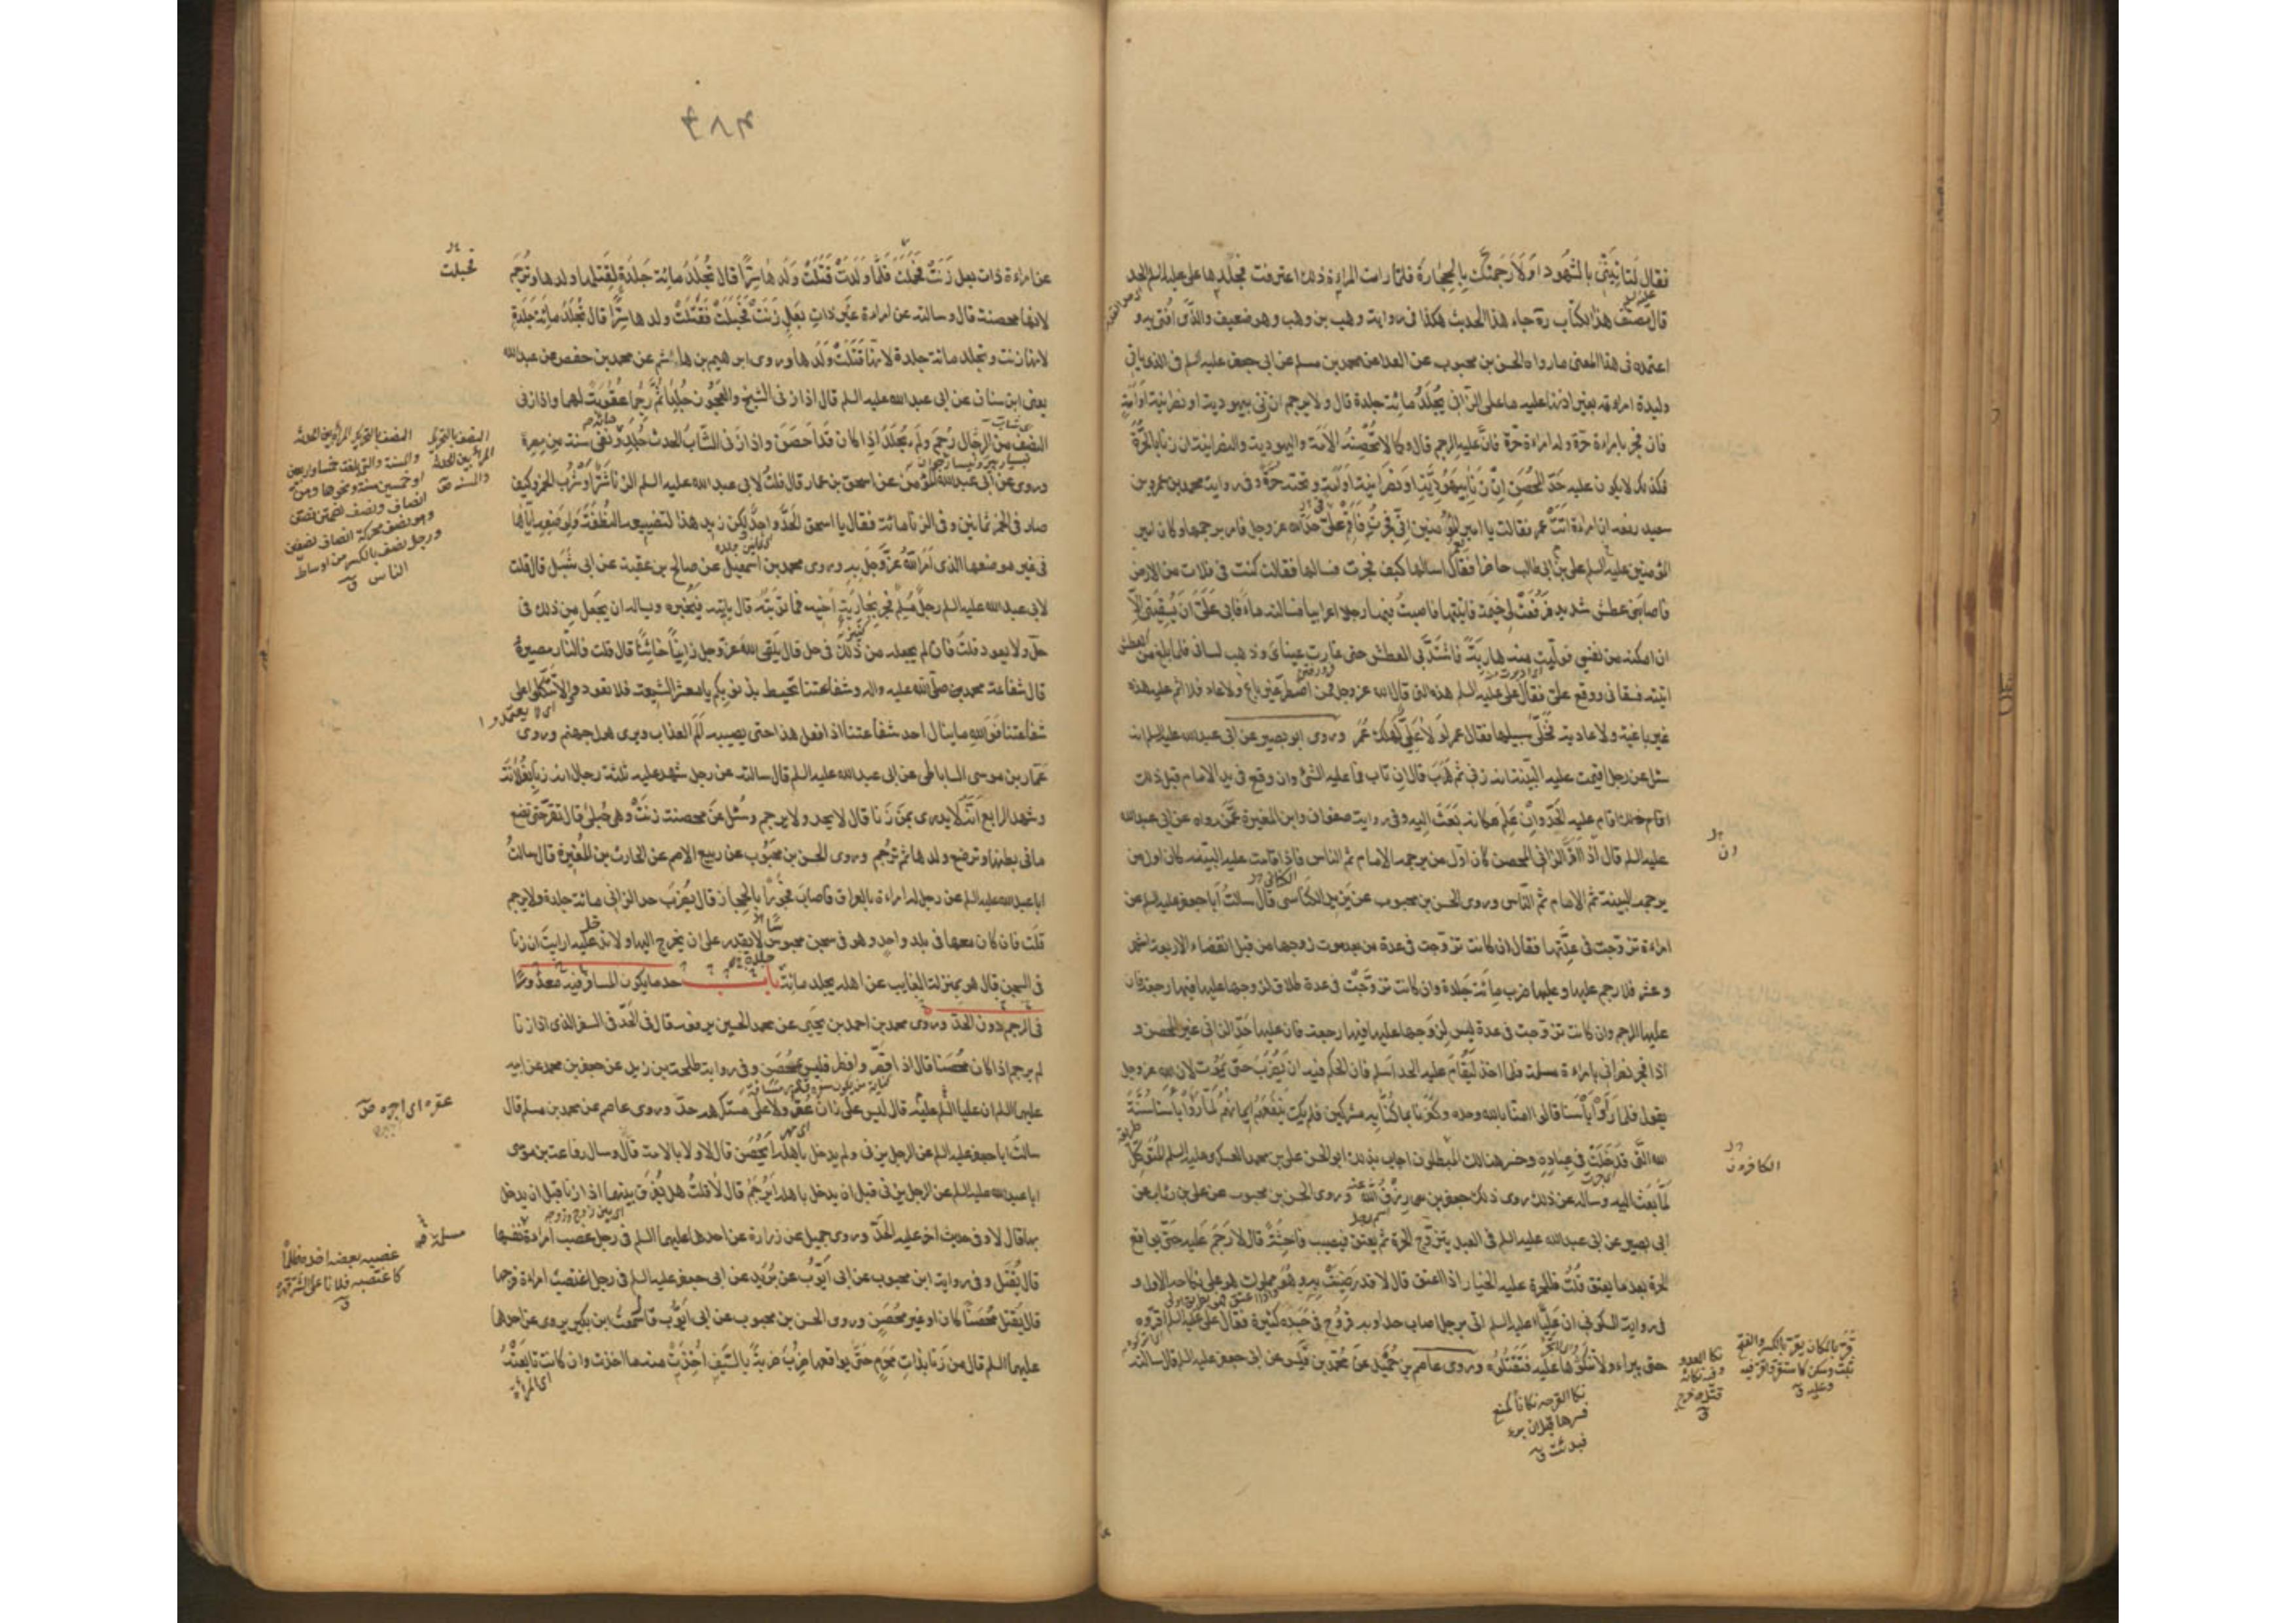 فقال لتأتيني بالشهود اولارجمنك بالحجارة فلما رات المراة ذلك اعترفت فجلدها على عليه السلم الحد
قال مصنف هذا الكتاب ره جاء هذا الحديث هكذا فى رواية وهب بن وهب وهو ضعيف والذى افتى به و
اعتمده فى هذا المعنى ما رواه الحسن بن محبوب عن العلا عن محمد بن مسلم عن ابى جعفر عليه السلم فى الذى ياتى
وليدة امراته بغير اذنها عليه ما على الزانى يجلد مائة جلدة قال ولا يرجم ان زنى بيهودية او نصرانية او امة
فان فجر بامراة حرة وله امراة حرة فان عليه الرجم قال وكما لا تحصنه الامة واليهودية والنصرانية ان زنا بالحرة
فكذلك لا يكون عليه حد المحصن ان زنا بيهودية او نصرانية او امة وتحته حرة وفى رواية محمد بن عمرو بن
سعيد رفعه ان امراة اتت عمر فقالت يا امير المؤمنين انى فجرت فاقم على حد الله عز وجل فامر برجمها وكان امير
المؤمنين عليه السلم على بن ابى طالب حاضرا فقال اسالها كيف فجرت فسالها فقالت كنت فى فلات من الارض
فاصابنى عطش شديد فرفعت لى خيمة فاتيتها فاصبت فيها رجلا اعرابيا فسالته ماء فابى على ان يسقينى الا
ان امكنه من نفسى فوليت منه هاربة فاشتد بى العطش حتى غارت عيناى وذهب لسانى فلما بلغ من العطش
اتيته فسقانى ووقع على فقال على عليه السلم هذه التى قال الله عز وجل فمن اضطر غير باغ ولا عاد فلا اثم عليه هذه
غير باغية ولا عادية فخلى سبيلها فقال عمر لولا على لهلك عمر وروى ابو بصير عن ابى عبد الله عليه السلم انه
سئل عن رجل اقيمت عليه البينة انه زنى ثم هرب قال ان تاب فما عليه شئ وان وقع فى يد الامام قبل ذلك
اقام عليه الحد وان علم مكانه بعث اليه وفى رواية صفوان وابن المغيرة عمن رواه عن ابى عبد الله
عليه السلم قال اذا اقر الزانى المحصن كان اول من يرجمه الامام ثم الناس فاذا قامت عليه البينة كان اول من
يرجمه البينة ثم الامام ثم الناس وروى الحسن بن محبوب عن يزيد الكناسى قال سالت ابا جعفر عليه السلم عن
امراة تزوجت فى عدتها فقال ان كانت تزوجت فى عدة من بعد موت زوجها من قبل انقضاء الاربعة اشهر
وعشر فلا رجم عليها وعليها ضرب مائة جلدة وان كانت تزوجت فى عدة طلاق لزوجها عليها فيها رجعة فان
عليها الرجم وان كانت تزوجت فى عدة ليس لزوجها عليها فيها رجعة فان عليها حد الزانى غير المحصن و
اذا فجر نصرانى بامراة مسلمة فلما اخذ ليقام عليه الحد اسلم فان الحكم فيه ان يضرب حتى يموت لان الله عز وجل
يقول فلما راوا باسنا قالوا امنا بالله وحده وكفرنا بما كنا به مشركين فلم يك ينفعهم ايمانهم لما راوا باسنا سنة
الله التى قد خلت فى عباده وخسر هنالك المبطلون اجاب بذلك ابو الحسن على بن محمد العسكرى عليه السلم المتوكل
لما بعث اليه وساله عن ذلك روى ذلك جعفر بن رزق الله عنه وروى الحسن بن محبوب عن على بن رئاب عن
ابى بصير عن ابى عبد الله عليه السلم فى العبد يتزوج الحرة ثم يعتق فيصيب فاحشة قال لا رجم عليه حتى يواقع
الحرة بعد ما يعتق قلت فللحرة عليه الخيار اذا اعتق قال لا قد رضيت به وهو مملوك هو على نكاحه الاول و
فى رواية السكونى ان عليا عليه السلم اتى برجل اصاب حدا وبه قروح فى جسده كثيرة فقال على عليه السلم اقروه
حتى يبراء ولا تنكؤها عليه فتقتلوه وروى عاصم بن حميد عن محمد بن قيس عن ابى جعفر عليه السلم قال سالته
ان
الكافرون
نكا القرحة نكأ كمنع
قشرها قبل ان يبرء
فنديت ق
٣٨٤
عن امراة ذات بعل زنت فحملت فلما ولدت قتلت ولدها سرا قال تجلد مائة جلدة لقتلها ولدها وترجم
لانها محصنة قال وسالته عن امراة غير ذات بعل زنت فحبلت فقتلت ولدها سرا قال تجلد مائة جلدة
لانها زنت وتجلد مائة جلدة لانها قتلت ولدها وروى ابرهيم بن هاشم عن محمد بن حفص عن عبد الله
يعنى ابن سنان عن ابى عبد الله عليه السلم قال اذا زنى الشيخ والعجوز جلدا ثم رجما عقوبة لهما واذا زنى
النصف من الرجال رجم ولم يجلد اذا كان قد احصن واذا زنى الشاب الحدث جلد ونفى سنة من مصره
وروى عن ابى عبد الله المؤمن عن اسحق بن عمار قال قلت لابى عبد الله عليه السلم الزنا شر او شرب الخمر وكيف
صار فى الخمر ثمانين وفى الزنا مائة فقال يا اسحق الحد واحد لكن زيد هذا لتضييعه النطفة ولوضعه اياها
فى غير موضعها الذى امر الله عز وجل به وروى محمد بن اسمعيل عن صالح بن عقبة عن ابى شبل قال قلت
لابى عبد الله عليه السلم رجل مسلم فجر بجارية اخيه فما توبته قال ياتيه فيخبره ويساله ان يجعل من ذلك فى
حل ولا يعود قلت فان لم يجعله من ذلك فى حل قال يلقى الله عز وجل زانيا خائنا قال قلت فالنار مصيره
قال شفاعة محمد بن صلى الله عليه واله وشفاعتنا تحيط بذنوبكم يا معشر الشيعة فلا تعودوا ولا تتكلوا على
شفاعتنا فو الله ما ينال احد شفاعتنا اذا فعل هذا حتى يصيبه الم العذاب ويرى هول جهنم وروى
عمار بن موسى الساباطى عن ابى عبد الله عليه السلم قال سالته عن رجل شهد عليه ثلثة رجال انه زنا بفلانة
وشهد الرابع انه لا يدرى بمن زنا قال لا يحد ولا يرجم وسئل عن محصنة زنت وهى حبلى قال تقر حتى تضع
ما فى بطنها وترضع ولدها ثم ترجم وروى الحسن بن محبوب عن ربيع الاصم عن الحارث بن المغيرة قال سالت
ابا عبد الله عليه السلم عن رجل له امراة بالعراق فاصاب فجورا بالحجاز قال يضرب حد الزانى مائة جلدة ولا يرجم
قلت فان كان معها فى بلد واحد وهو فى سجن محبوس لا يقدر على ان يخرج اليها ولا تدخل عليه ارايت ان زنا
فى السجن قال هو بمنزلة الغايب عن اهله يجلد مائة باب حد ما يكون المسافر فيه معذورا
فى الرجم دون الحد وروى محمد بن احمد بن يحيى عن محمد الحسين يرفعه قال فى الحد فى السفر الذى اذا زنا
لم يرجم اذا كان محصنا قال اذا قصر وافطر فليس بمحصن وفى رواية طلحة بن زيد عن جعفر بن محمد عن ابيه
عليهما السلم ان عليا عليه السلم قال ليس على زان عقر ولا على مستكرهة حد وروى عاصم عن محمد بن مسلم قال
سالت ابا جعفر عليه السلم عن الرجل يزنى ولم يدخل باهله ايحصن قال لا ولا بالامة قال وسال رفاعة بن موسى
ابا عبد الله عليه السلم عن الرجل يزنى قبل ان يدخل باهله ايرجم قال لا قلت هل يفرق بينهما اذا زنا قبل ان يدخل
بها قال لا وفى حديث اخر عليه الحد وروى جميل عن زرارة عن احدهما عليهما السلم فى رجل غصب امراة نفسها
قال يقتل وفى رواية ابن محبوب عن ابى ايوب عن بريد عن ابى جعفر عليه السلم فى رجل اغتصب امراة فرجها
قال يقتل محصنا كان او غير محصن وروى الحسن بن محبوب عن ابى ايوب قال سمعت ابن بكير يروى عن احدهما
عليهما السلم قال من زنا بذات محرم حتى يواقعها ضرب ضربة بالسيف اخذت منه ما اخذت وان كانت تابعته
اى المراة
فحبلت
عقره اى اجره
مسلمة